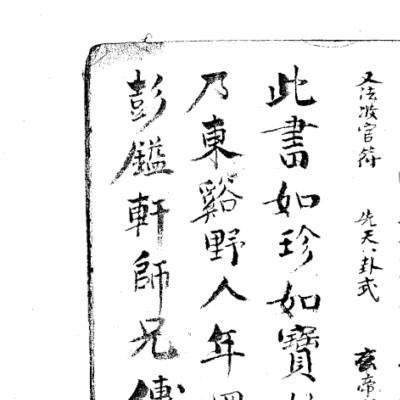 又法收官符 先天八卦式 玄帝
此書如珍如寶
乃東谿野人年
彭鎰軒師兄傳